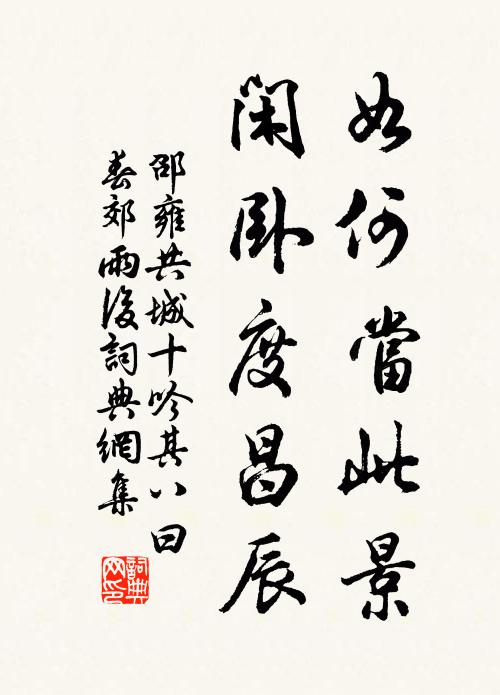 如何當此景
閑臥度昌辰
邵雍共城十吟其八曰
春郊雨後詞典網集
詞典
网印